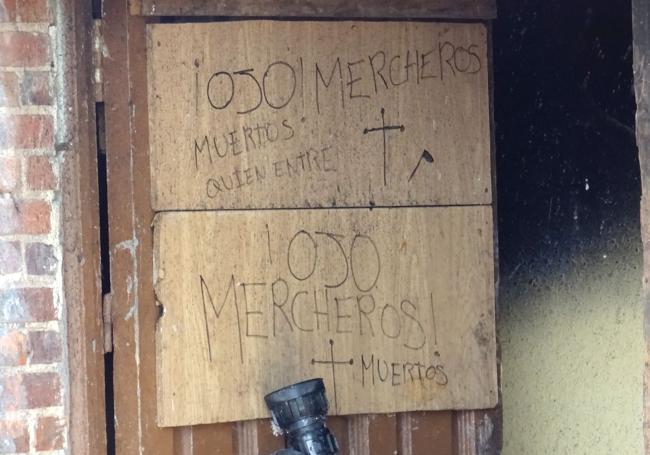 ¡OJO! MERCHEROS
MUERTOS
QUIEN ENTRE
¡OJO
MERCHEROS!
MUERTOS